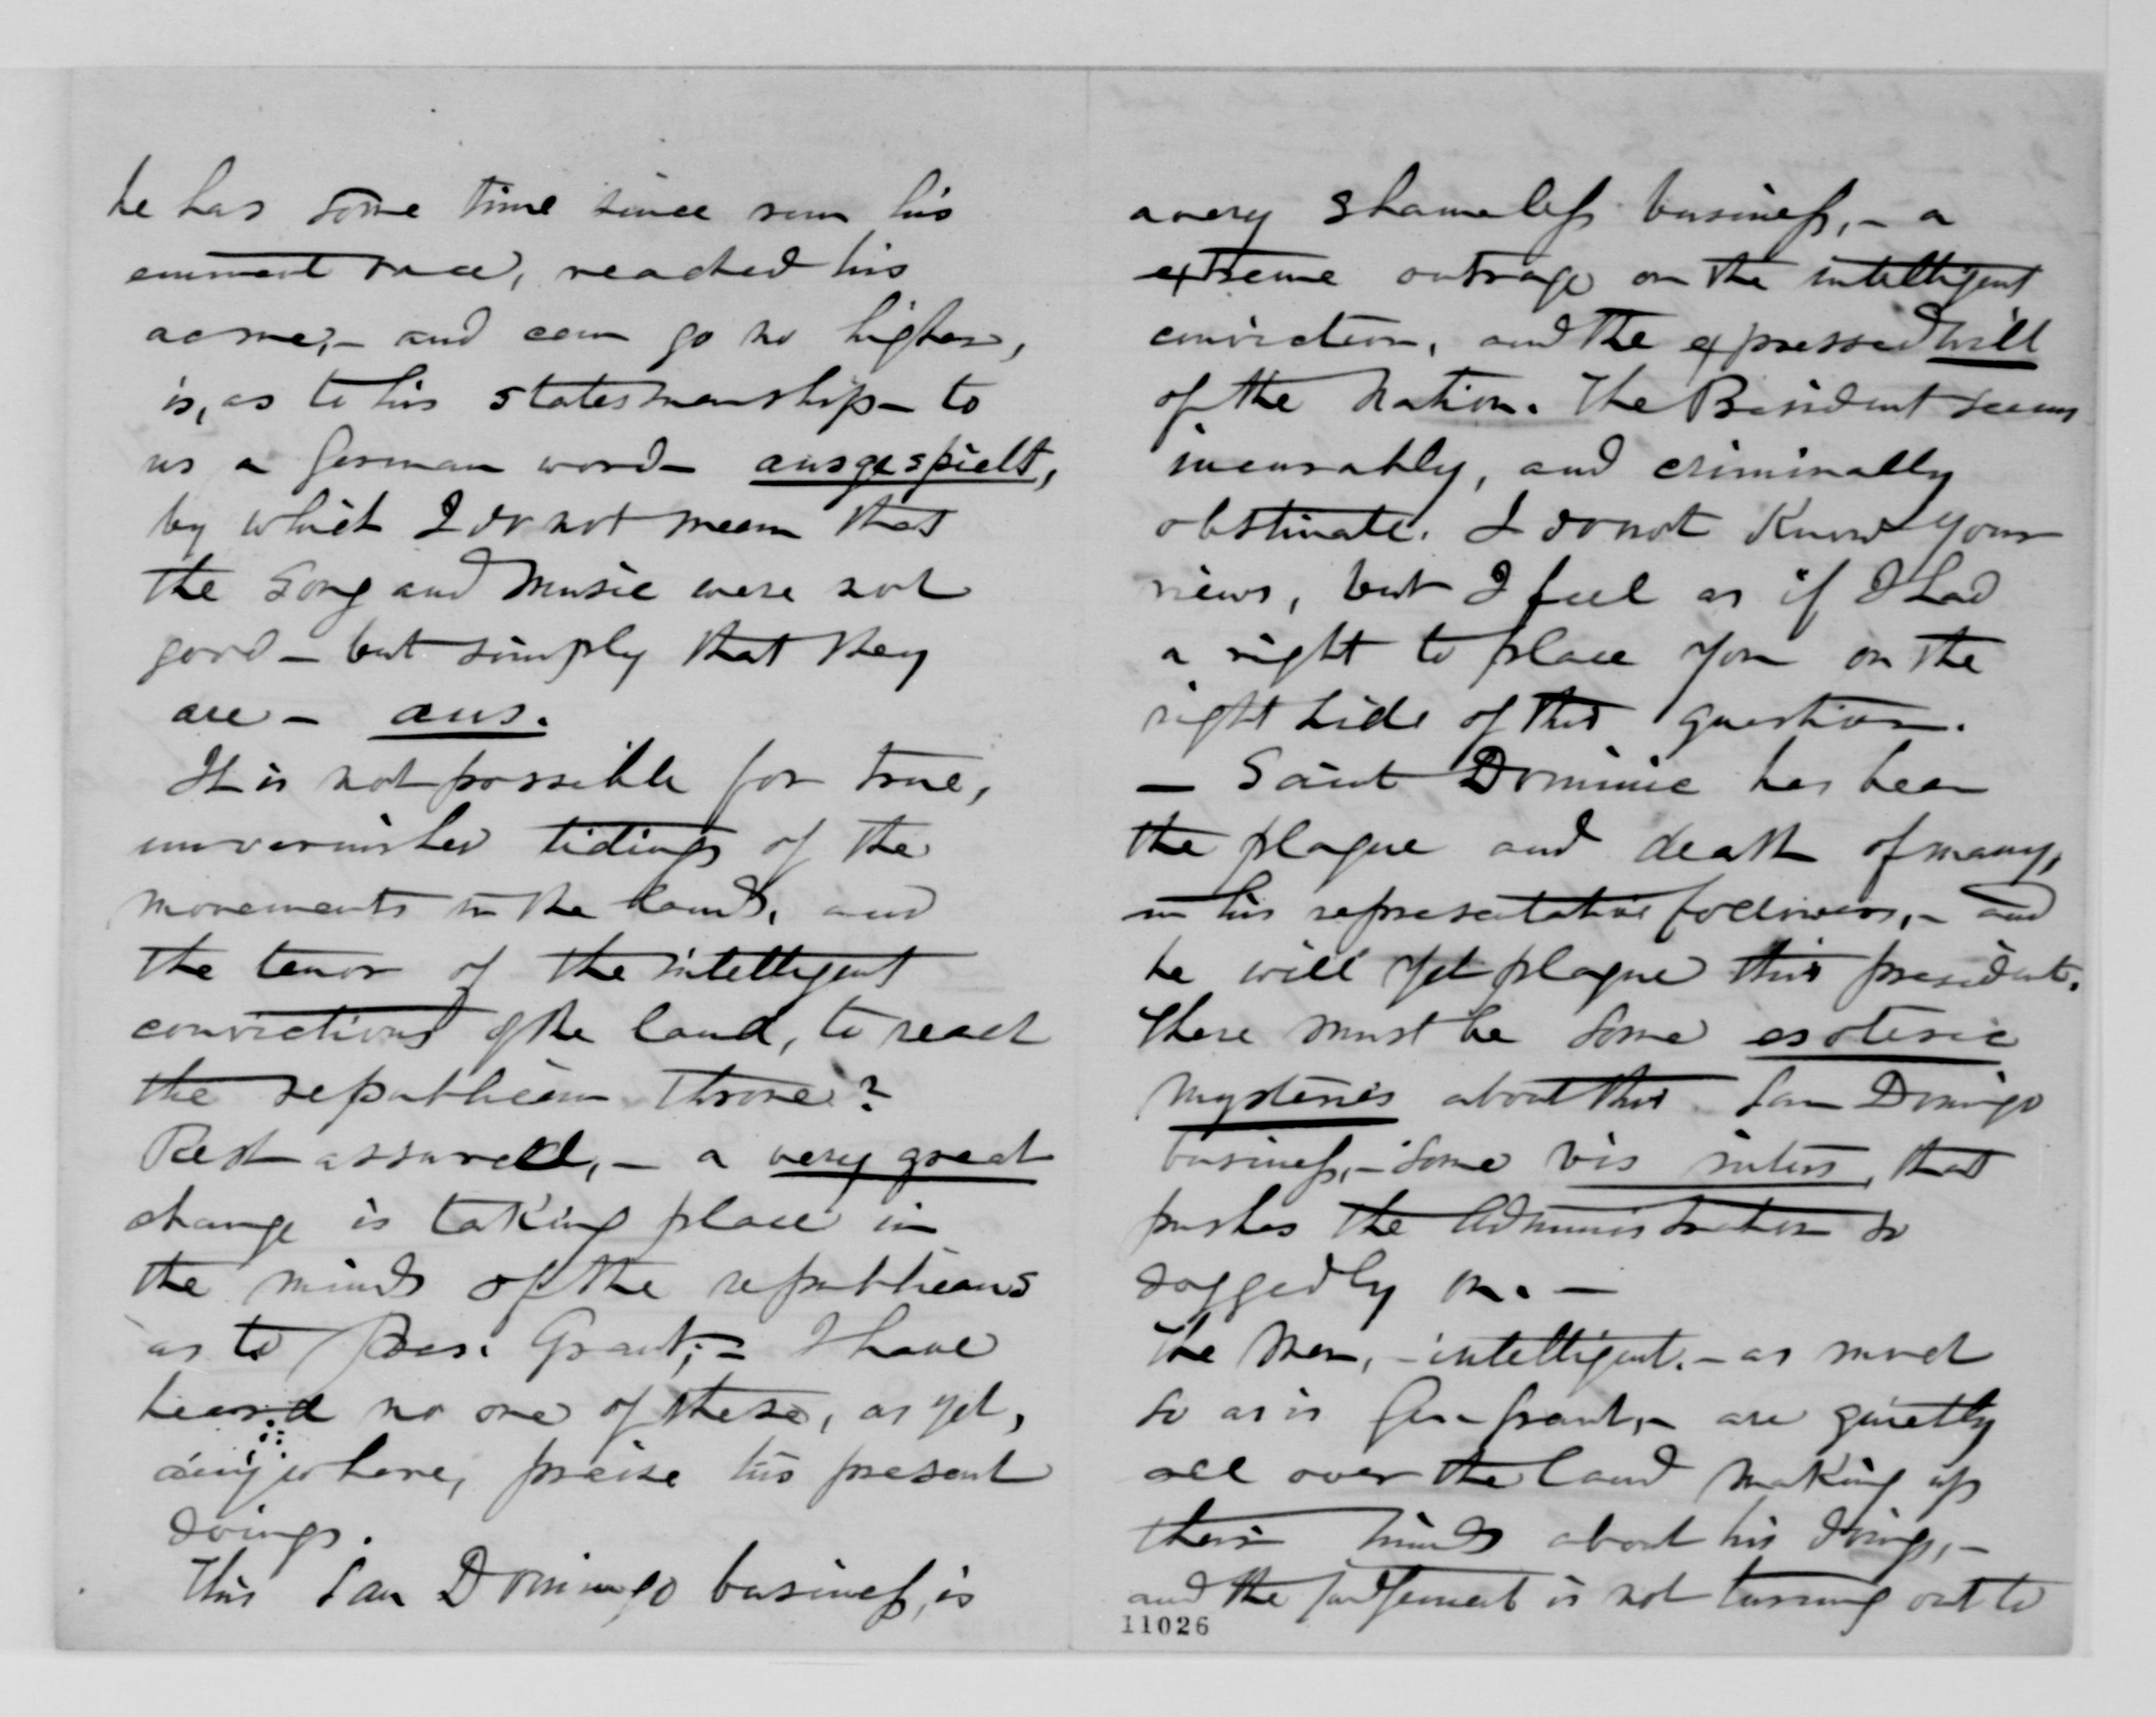 he has some time since run his
eminent race, reached his
acme,- and can go no higher,
is, as to his statesmanship - to
us a German word - ausgespielt,
by which I do not mean that
the song and music were not
good - but simply that they
are - aus.
It is not possible for true,
unvarnished tidings of the
movements in the land, and
the tenor of the intelligent
convictions of the land, to reach
the republican throne?
Rest assured, - a very great
change is taking place in
the minds of the republicans
as to Pres. Grant; - I have
heard no one of these, as yet,
anywhere, praise his present
doings.
This San Domingo business, is
a very shameless business, - a
extreme outrage on the intelligent
conviction, and the expressed will
of the nation. The President seems
incurably, and criminally
obstinate. I do not know your
views, but I feel as if I had
a right to place you on the
right side of this question.
- Saint Dominic has been
the plague and death of many,
in his representative followers, - and
he will yet plague this president.
There must be some esoteric
mysteries about this San Domingo
business, - some vis inters, that
pushes the Administration so
doggedly on. -
The men, - intelligent, - as much
so as is Gen Grant, - are quietly
all over the land making up
their minds about his doings, -
and the judgement is not turning out to
11026